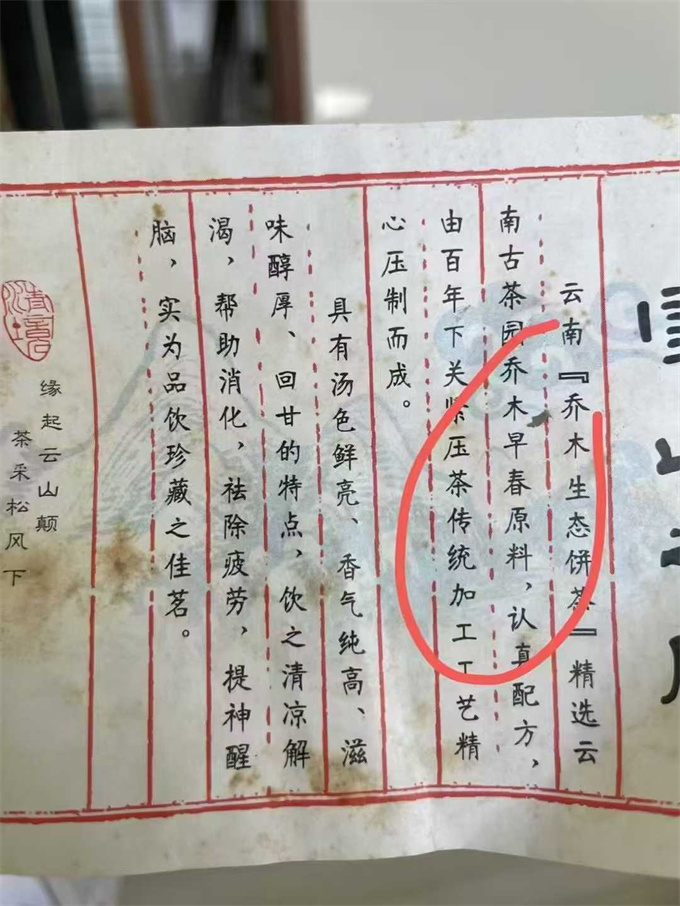 云南『乔木生态饼茶』精选云
南古茶园乔木早春原料，认真配方，
由百年下关紧压茶传统加工工艺精
心压制而成。
具有汤色鲜亮、香气纯高、滋
味醇厚、回甘的特点，饮之清凉解
渴，帮助消化，祛除疲劳，提神醒
脑，实为品饮珍藏之佳茗。
缘起云山颠
茶采松风下